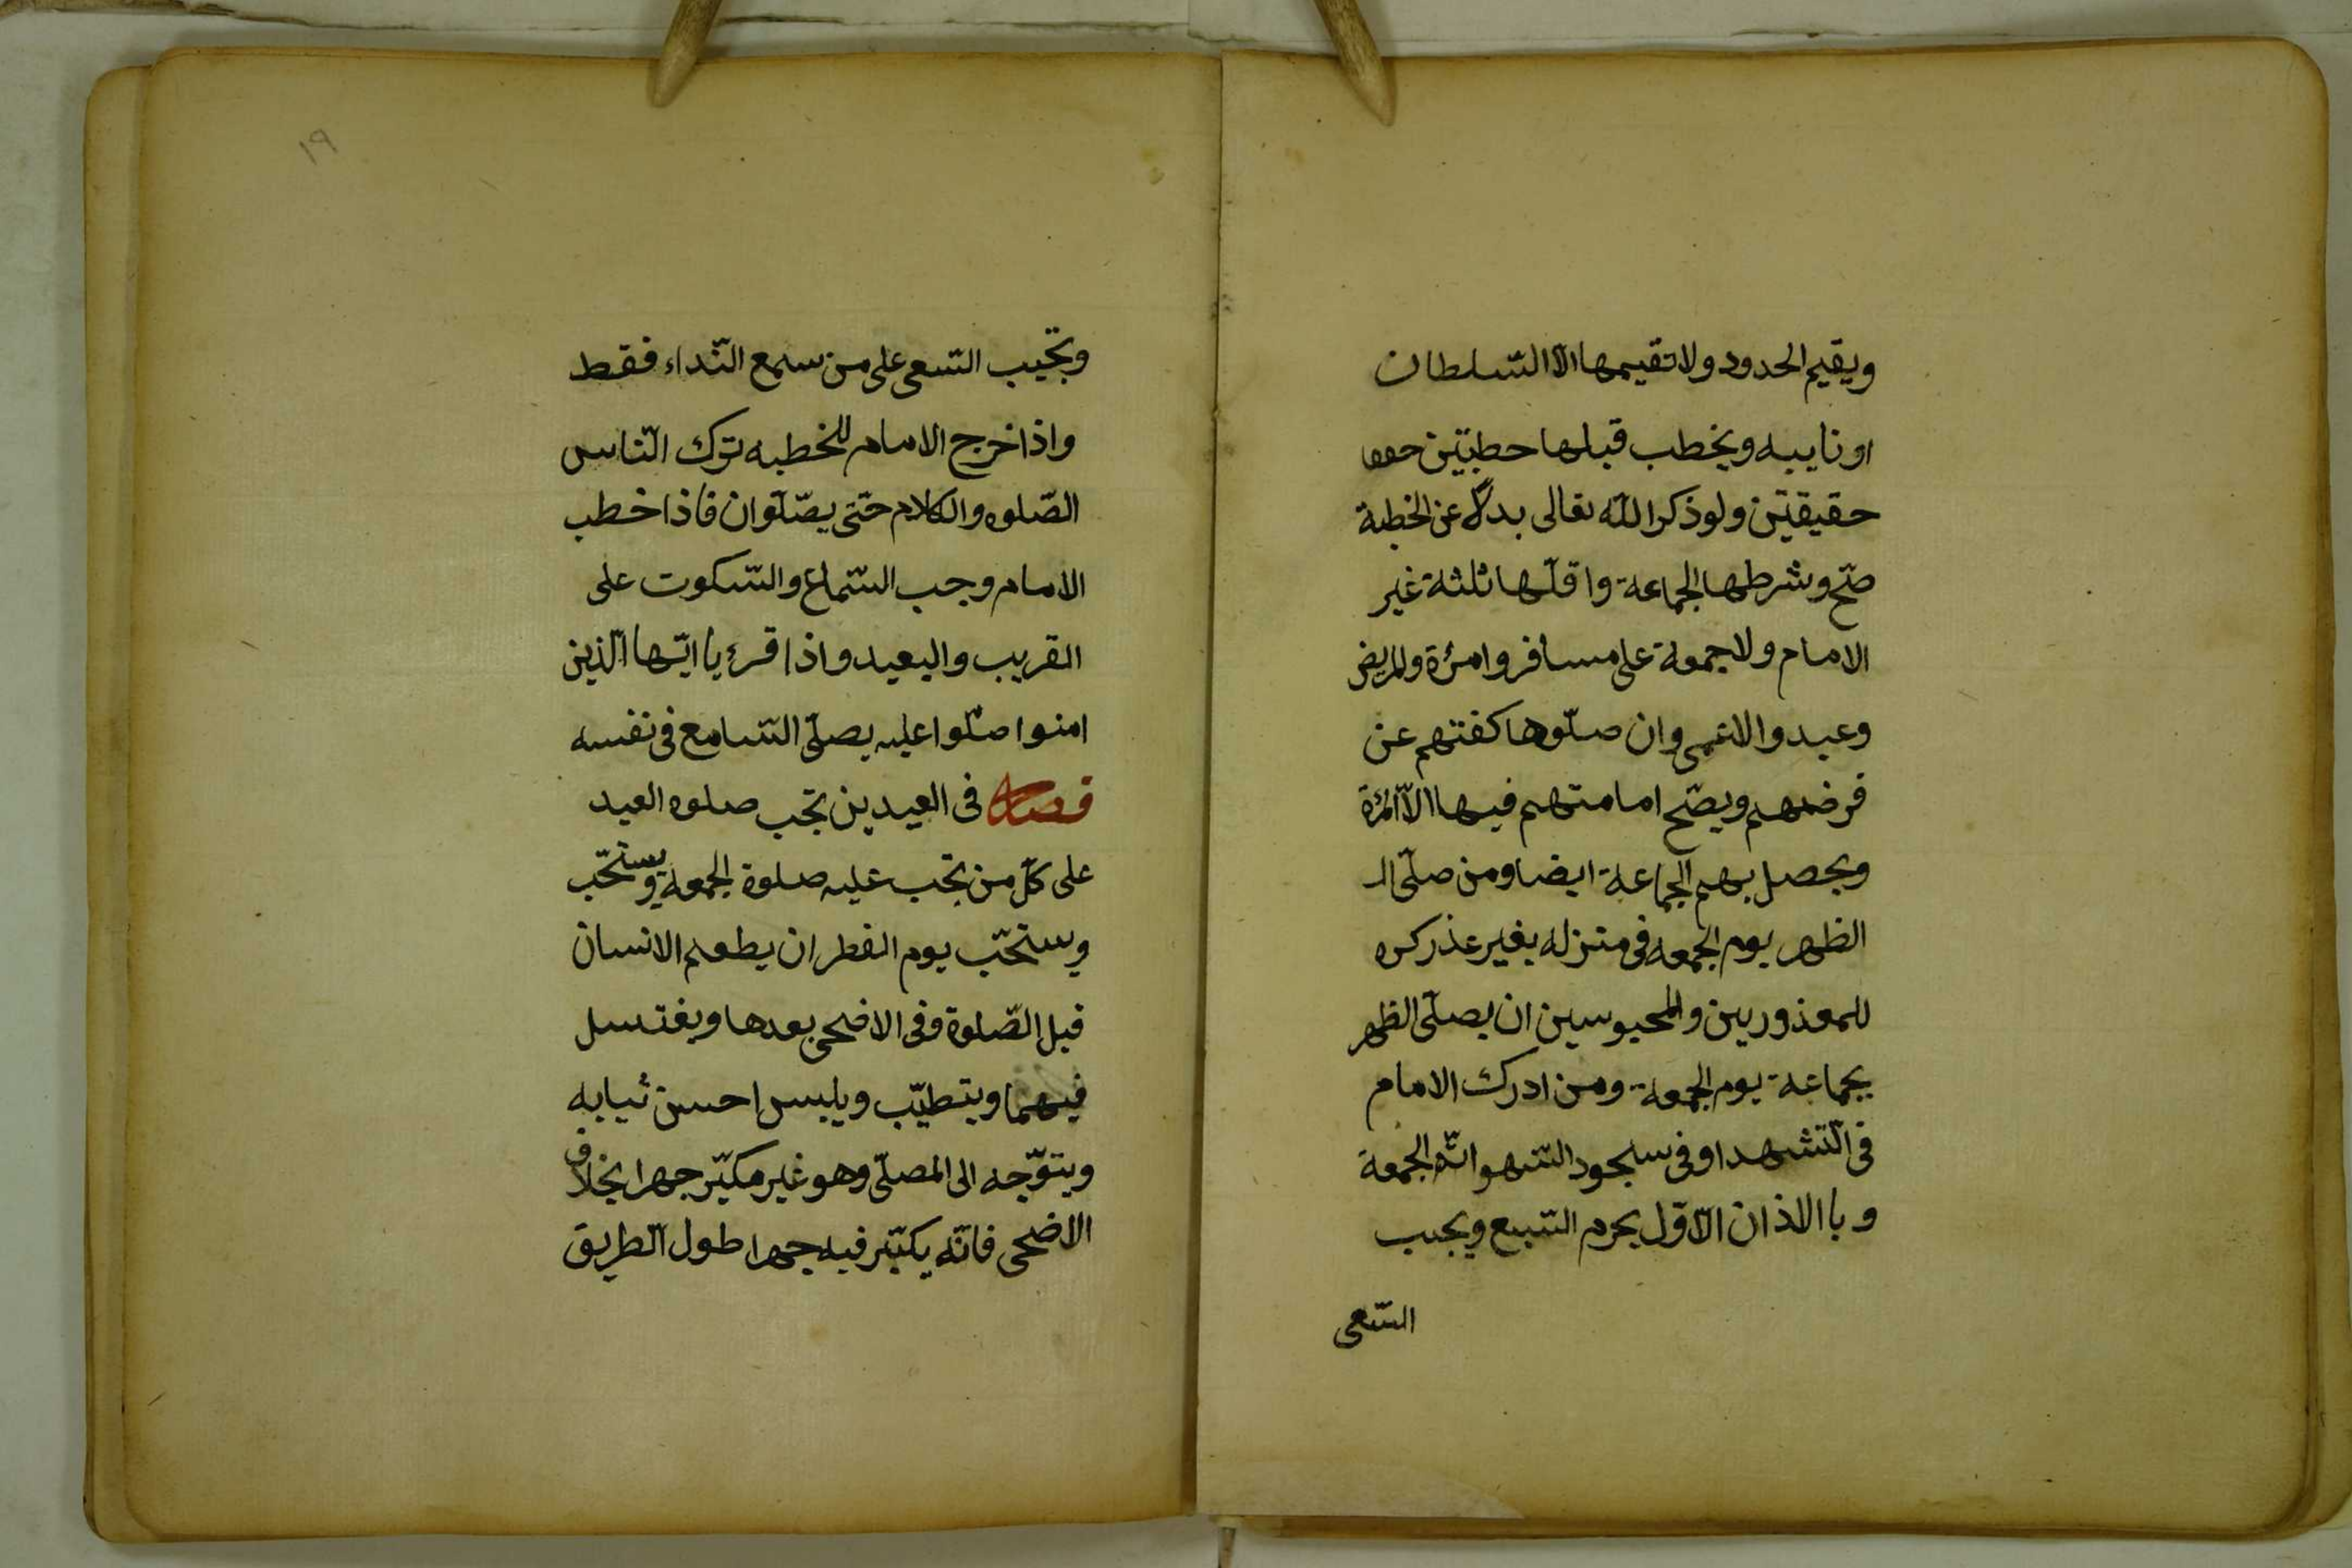 ويقيم الحدود ولا تقيمها الّا السّلطان
او نايبه ويخطب قبلها حطبتين
حقيقتين ولو ذكر اللّه تعالى بدلاً عن الخطبة
صحّ وشرطها الجماعة واقلّها ثلثة غير
الامام ولا جمعة على مسافر وامرٔة والمريض
وعبد والاعمى وان صلّوها كفتهم عن
فرضهم ويصحّ امامتهم فيها الّا المرٔة
ويحصل بهم الجماعة ايضا ومن صلّى الـ
الظهر يوم الجمعه فى منزله بغير عذر كره
للمعذورين والمحبوسين ان يصلّى الظهر
بجماعة يوم الجمعة ومن ادرك الامام
فى التّشهد او فى سجود السّهو الجمعة
و باالاذان الاوّل يحرم البّيع ويجب
السّعى
١٩
ويجب السّعى على من سمع النّداء فقط
واذا خرج الامام للخطبه ترك النّاس
الصّلوه والكلام حتّى يصّلّوان فاذا خطب
الامام وجب السّتماع والسّكوت على
القريب والبعيد واذا قرء يا ايّها الّذين
امنوا صلّوا عليه يصلّى السّامع فى نفسه
فصل فى العيدين تجب صلوه العيد
على كلّ من تجب عليه صلوة الجمعه ويستحّب
ويستحّب يوم الفطر ان يطعم الانسان
قبل الصّلوة وفى الاضحى بعدها ويغتسل
فيهما ويتطيّب ويلبس احسن ثيابه
ويتوّجه الى المصلّى وهو غير مكبّر جهرا بخلاف
الاضحى فانّه يكبّر فيه جهرا طول الطّريق